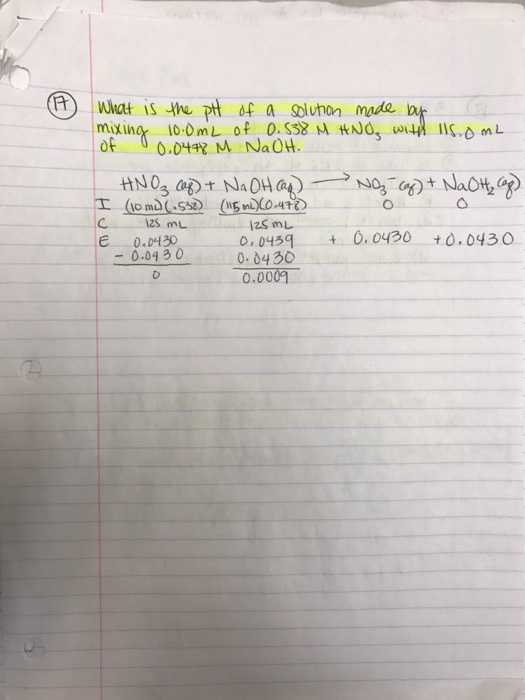 17 What is the pH of a solution made by
mixing 10.0 mL of 0.538 M HNO3 with 115.0 mL
of 0.0478 M NaOH.
HNO3 (aq) + NaOH (aq) → NO3- (aq) + NaOH2 (aq)
I (10 mL)(.538) (115 mL)(0.478) 0 0
C 125 mL 125 mL
E 0.0430 0.0439 + 0.0430 + 0.0430
- 0.0430 0.0430
0 0.0009